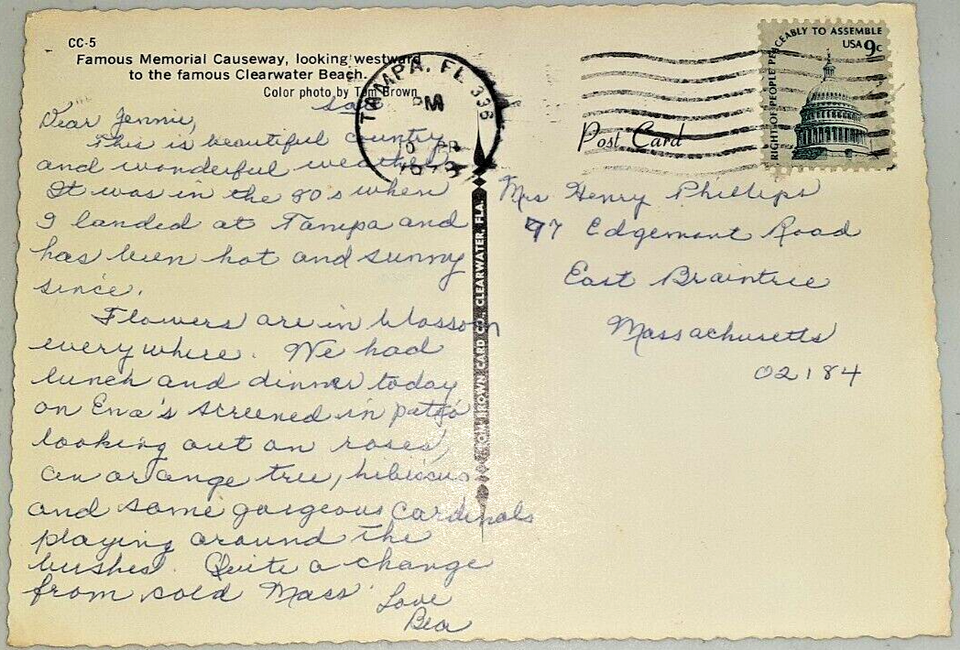 CC-5
Famous Memorial Causeway, looking westward
to the famous Clearwater Beach.
Color photo by Tom Brown
Dear Jennie,
This is beautiful county
and wonderful weather.
It was in the 80's when
I landed at Tampa and
has been hot and sunny
since.
Flowers are in blossom
everywhere. We had
lunch and dinner today
on Ena's screened in patio
looking out on roses,
an orange tree, hibiscus
and some gorgeous cardinals
playing around the
bushes. Quite a change
from cold Mass
Love
Bea
TAMPA, FL 336
PM
TOM BROWN CARD CO., CLEARWATER, FLA.
Post Card
RIGHT OF PEOPLE PEACEABLY TO ASSEMBLE
USA 9c
Mrs Henry Phillips
97 Edgemont Road
East Braintree
Massachusetts
02184